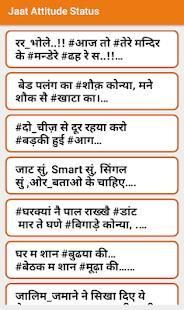 Jaat Attitude Status
रर_भोले..!! #आज तो #तेरे मन्दिर
के #मन्डेरे #ढह रे स..!!...
बेड पलंग का #शौक़ कोन्या, मने
शौक सै #खाटा का।...
#दो_चीज़ से दूर रहया करो
#बड़की हुई #आग...
जाट सुं, Smart सुं, सिंगल
सुं ,ओर_बताओ के चाहिए....
#घरक्यां नै पाल राख्खै #डांट
मार ते घणे #बिगाड़े कोन्या, ...
घर म शान #बुढया की...
#बेठक म शान #मूढ़ा की......
जालिम_जमाने ने सिखा दिए ये